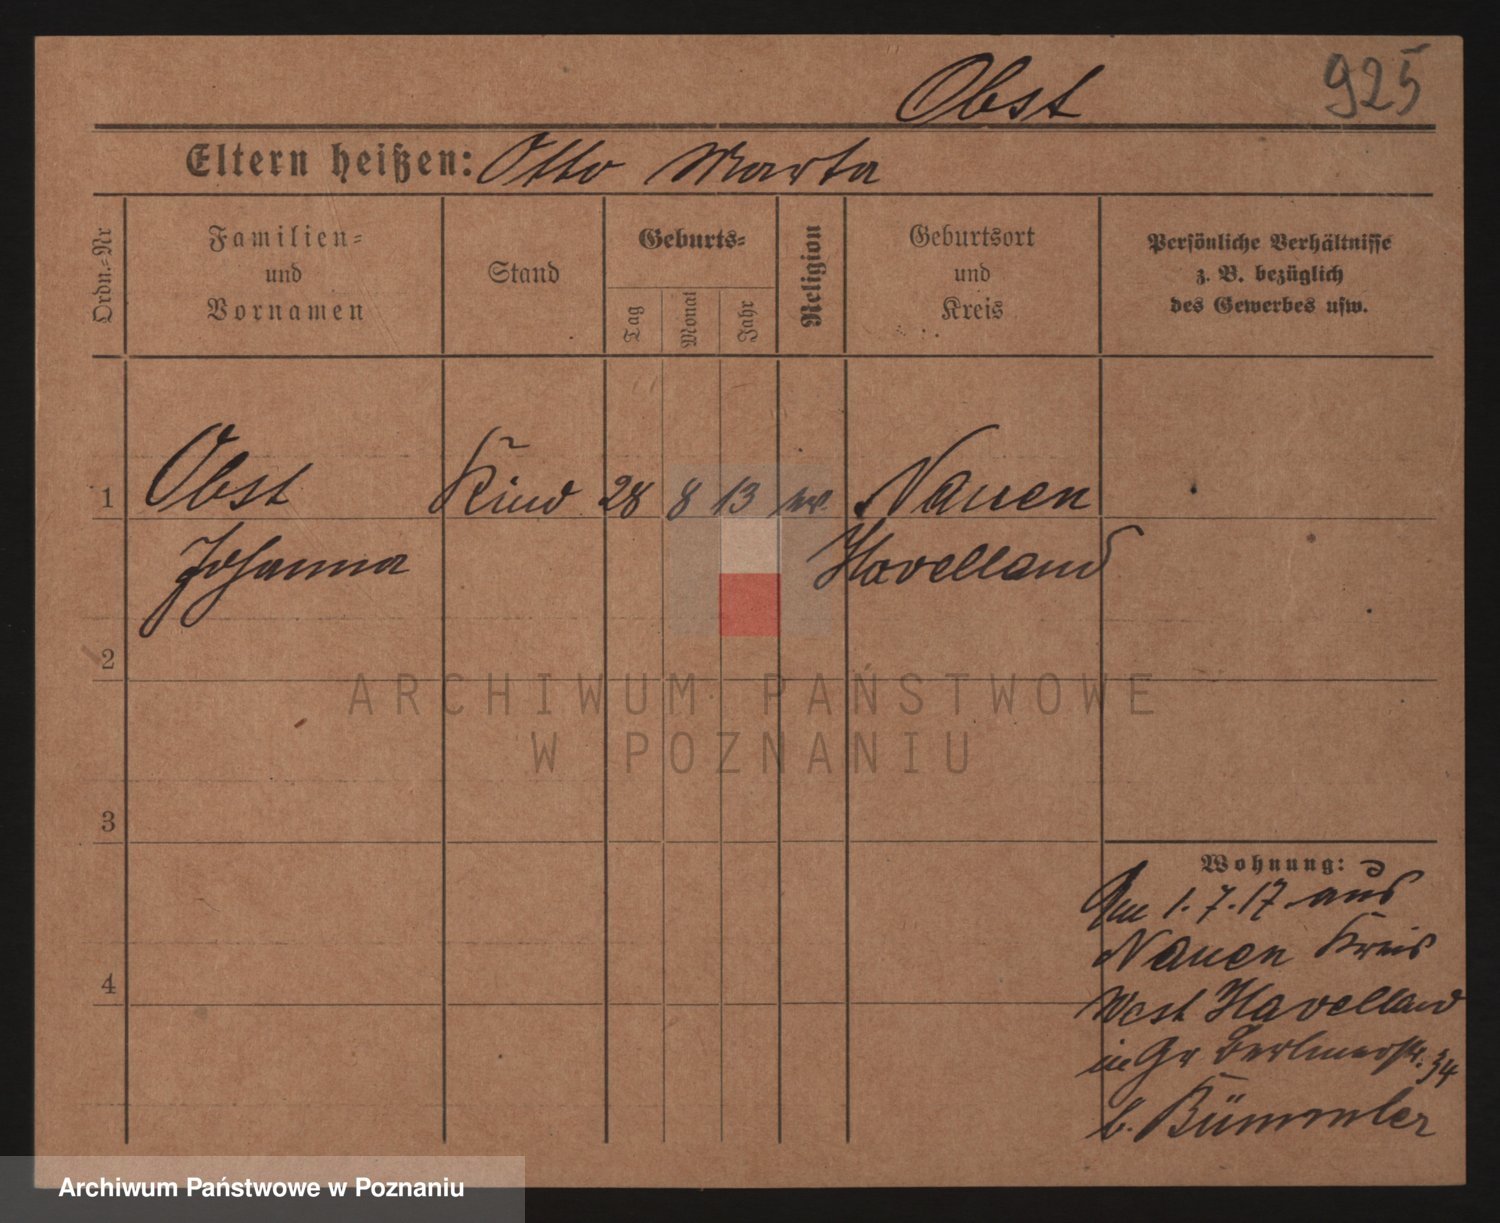 Obst 925
Eltern heißen: Otto Marta
Ordn.=Nr
Familien=
und
Vornamen
Stand
Geburts=
Tag
Monat
Jahr
Religion
Geburtsort
und
Kreis
Persönliche Verhältnisse
z. B. bezüglich
des Gewerbes usw.
1 Obst Kind 28 8 13 ev. Nauen
Johanna Havelland
2
ARCHIWUM PAŃSTWOWE
W POZNANIU
3
Wohnung:
Am 1.7.17 aus
Nauen Kreis
4
West Havelland
in Gr Berlinerstr. 34
b. Bümmler
Archiwum Państwowe w Poznaniu